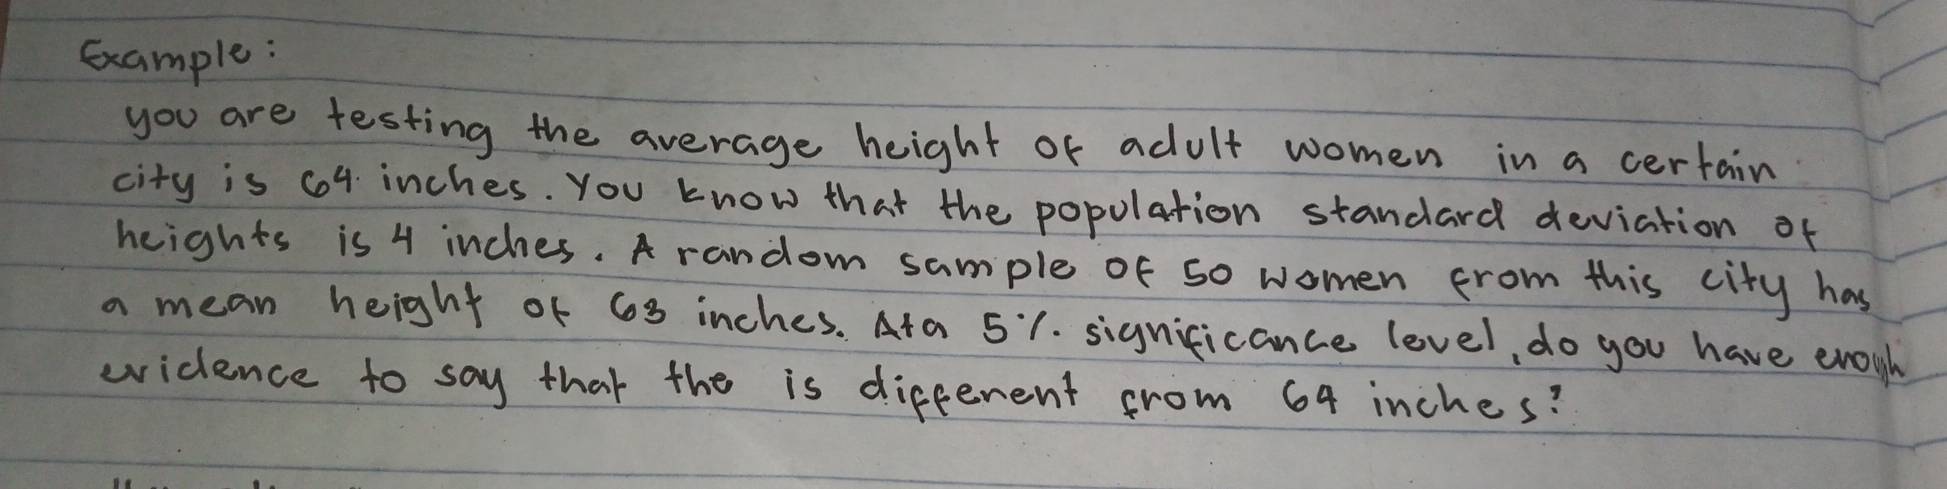 Example:
you are testing the average height of adult women in a certain
city is 64 inches. You know that the population standard deviation of
heights is 4 inches. A random sample of 50 women from this city has
a mean height of 63 inches. At a 5% significance level, do you have enough
evidence to say that the is different from 64 inches?